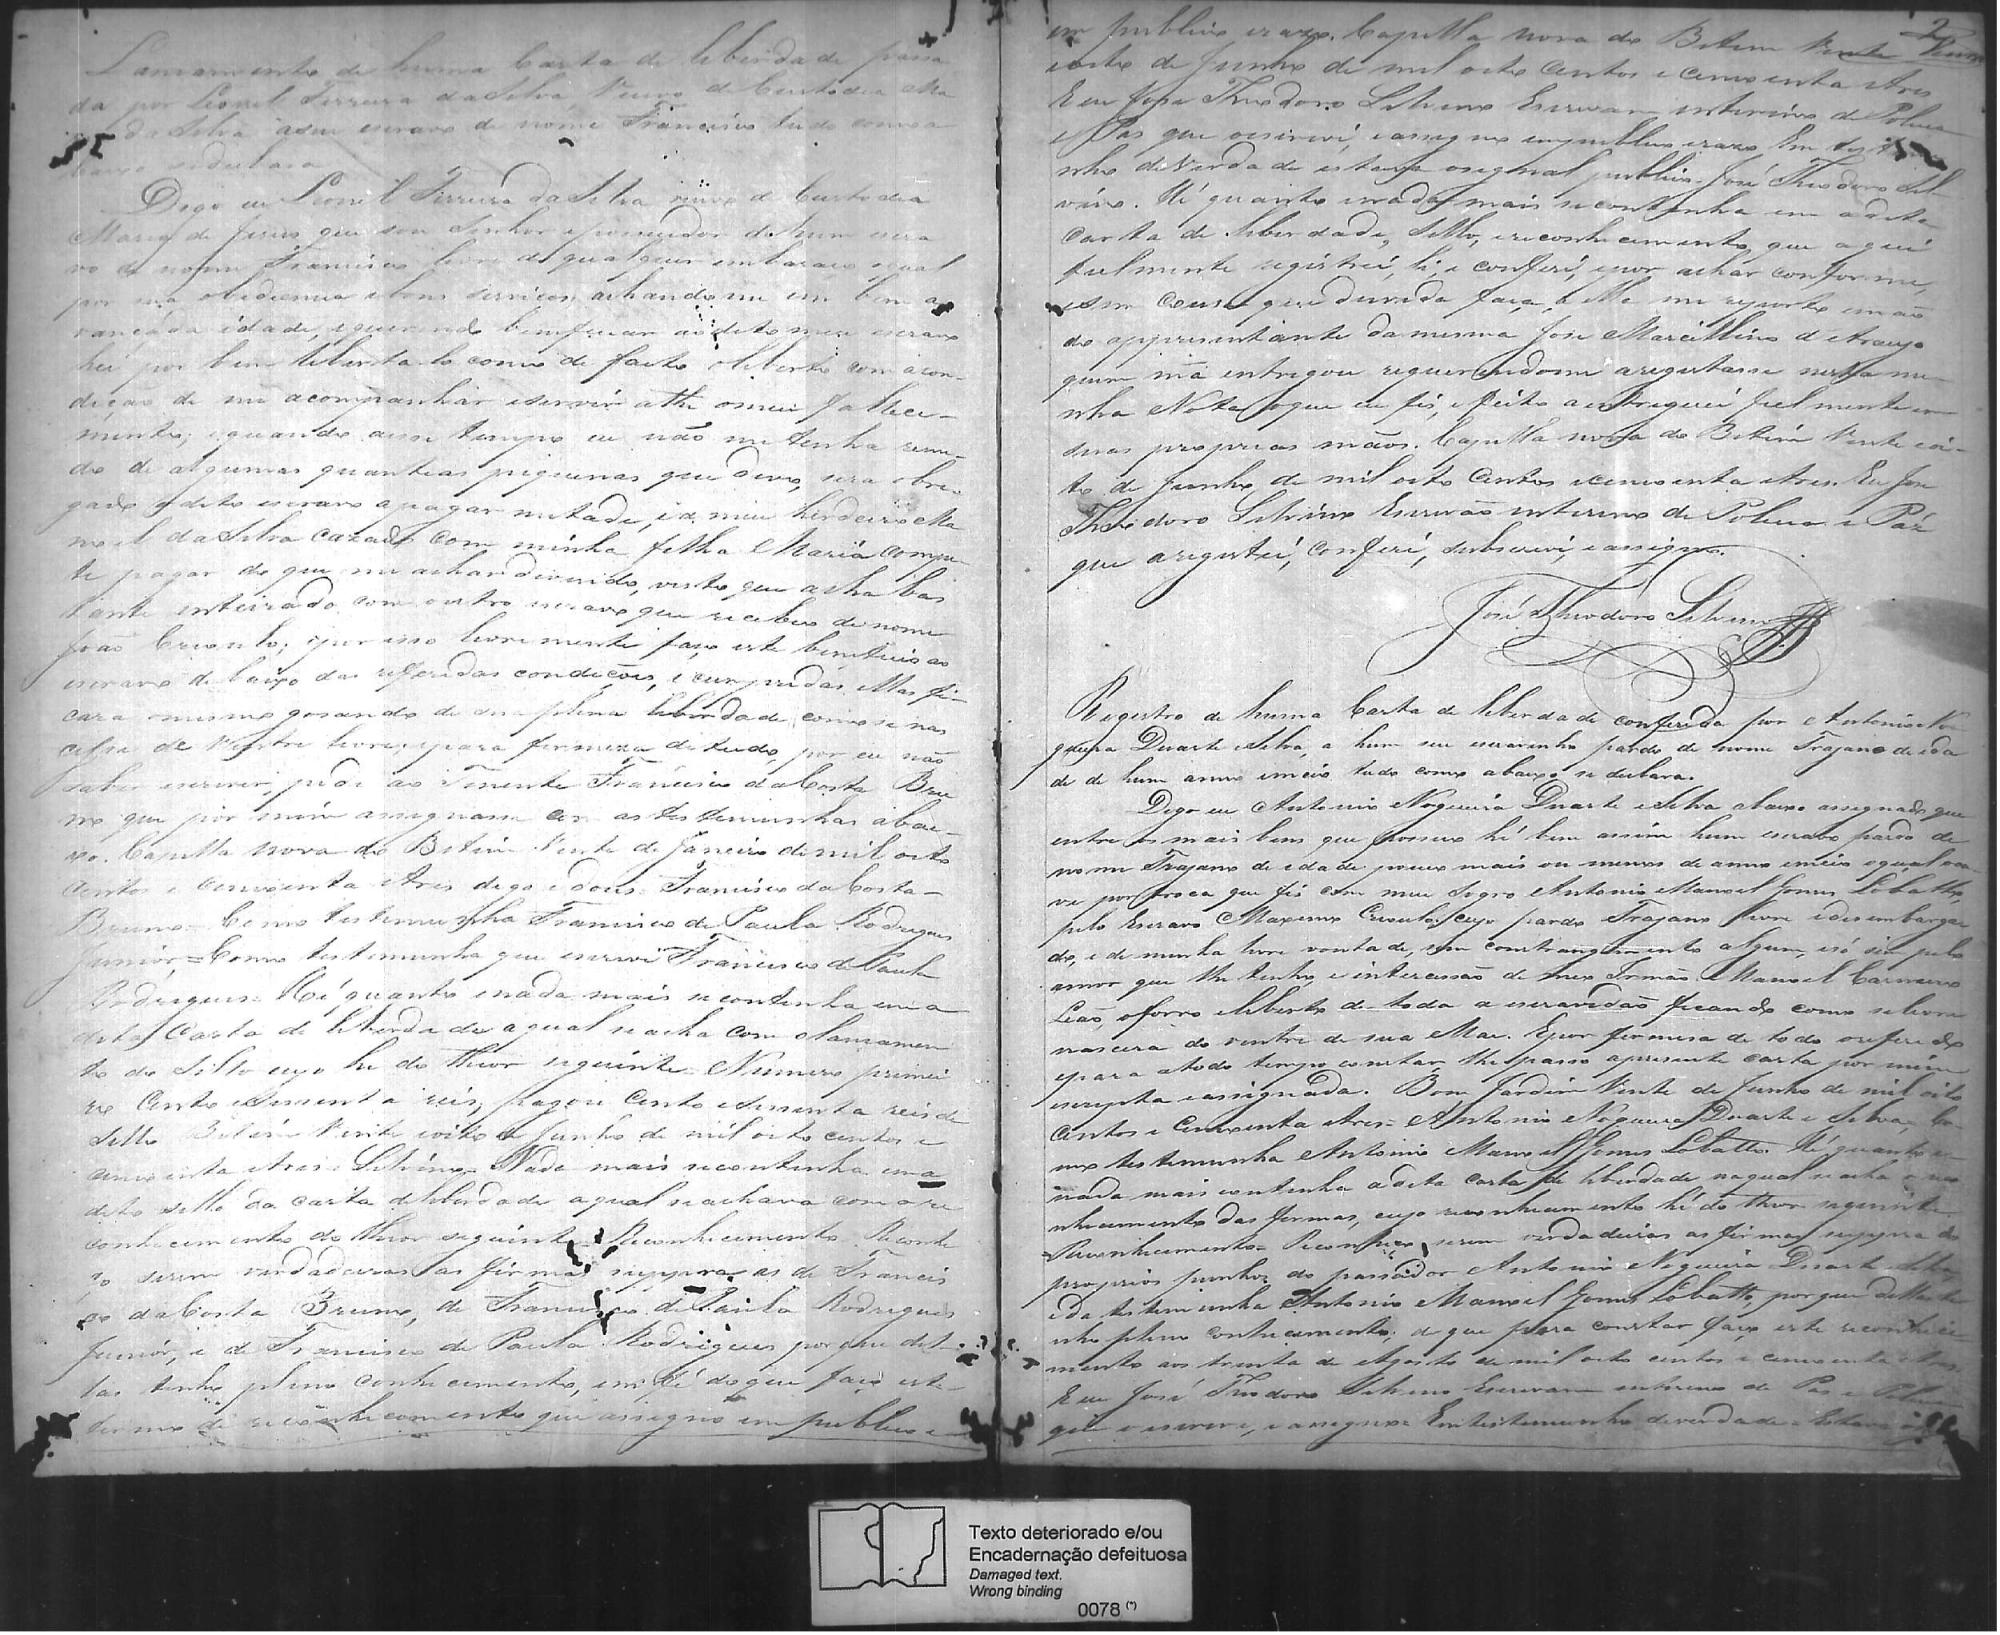 Lancamento de huma Carta de liberdade passa
da por Leonel Ferreira da Silva, Viuvo de Custodia Ma
da Silva a seu escravo de nome Francisco tudo como a
baixo se declara
Digo eu Leonel Ferreira da Silva viuvo de Custodia
Maria de Jesus que sou Senhor e possuidor de hum escra
vo de nome Francisco livre de qualquer embaraco o qual
por sua obediencia e bons servicos, achando me em bem a
vancada idade, e querendo beneficiar ao dito meu escravo
hei por bem liberta-lo como de facto o liberto com a con-
dição de me acompanhar e servir athe o meu fallece-
mento; e quando a esse tempo eu não me tenha remi-
do de algumas quantias piquenas que devo, sera obri-
gado o dito escravo a pagar metade, e a meu herdeiro Ma
noel da Silva cazado com minha filha Maria compe
te pagar do que me achar devendo, visto que acha bas
tante inteirado com outro escravo que recebeu de nome
João Crioulo; e por isso livremente faço este beneficio ao
escravo debaixo das referidas condições, e cumpridas ellas fi-
cara o mesmo gosando de sua plena liberdade como se nas
cesse de Ventre livre e para firmeza de tudo, por eu não
saber escrever, pedi ao Tenente Francisco da Costa Bru
no que por mim assignasse com as testemunhas abai-
xo. Capella nova do Betim Vinte de Janeiro de mil oito
Centos e Cincoenta e tres digo e dous. Francisco da Costa
Bruno = Como testemunha Francisco de Paula Rodrigues
Junior = Como testemunha que escrevi Francisco de Paula
Rodrigues. Hé quanto e nada mais se continha em a
dita Carta de liberdade a qual se acha com o lancamen
to do Sello cujo he do theor seguinte. Numero primei
ro Cento e secenta reis, pagou Cento e secenta reis de
Sello Betim Vinte e oito de Junho de mil oito centos e
cincoenta e tres. Silvino. Nada mais se continha em o
dito sello da carta de liberdade a qual se achava com o re
conhecimento do theor seguinte Reconhecimento. Reconhe
ço serem verdadeiras as firmas suppra as de Francis
co da Costa Bruno, de Francisco de Paula Rodrigues
Junior, e de Francisco de Paula Rodrigues por que del-
las tenho pleno conhecimento, em fé do que faço este
termo de reconhecimento que assigno em publico e
2
em publico e razo. Capella nova do Betim Vinte
e oito de Junho de mil oito Centos e Cincoenta e tres
E eu José Theodoro Silvino Escrivam interino de Policia
e Pas que o escrevi, e assigno em publico e razo Em testemu
nho de Verdade estava o signal publico José Theodoro Sil
vino. Hé quanto e nada mais se continha em a dita
Carta de liberdade, Sello, e reconhecimento, que aqui
fielmente registrei, li, e conferi, e por achár conforme,
e sem cousa que duvida faça, a ella me reporto em mão
do appresentante da mesma Jose Marcillino d'Araujo
quem ma entregou requerendome a registasse nesta mi
nha Nota o que eu fis, e feito a entreguei fielmente em
suas proprias mãos. Capella nova do Betim Vinte e oi-
to de Junho de mil oito Centos e cincoenta e tres. Eu Jose
Theodoro Silvino Escrivão interino de Policia e Paz
que a registei, conferi, subscrevi, e assigno.
José Theodoro Silvino
Registro de huma Carta de liberdade conferida por Antonio No
gueira Duarte e Silva, a hum seu escravinho pardo de nome Trajano de ida
de de hum anno e meio tudo como abaixo se declara.
Digo eu Antonio Nogueira Duarte e Silva abaixo assignado, que
entre os mais bens que possuo hé bem assim hum escravo pardo de
nome Trajano de idade pouco mais ou menos de anno e meio o qual ou
ve por troca que fis com meu Sogro Antonio Manoel Gomes Lobatto,
pelo Escravo Maximo Crioulo; cujo pardo Trajano livre e desembarga
do, e de minha livre vontade, sem constrangimento algum, e só sim pelo
amor que lhe tenho, e intercessão de meo Irmão Manoel Carneiro
Leão, o forro e liberto de toda a escravidão ficando como se livre
nascera do ventre de sua Mae. E por firmesa de todo o referido
e para a todo tempo constar, lhe passo a presente carta por mim
escripta e assignada. Bom Jardim Vinte de Junho de mil oito
Centos e Cincoenta e tres = Antonio Nogueira Duarte e Silva, Co-
mo testemunha Antonio Manoel Gomes Lobatto. Hé quanto e
nada mais continha a dita Carta de liberdade na qual se acha o reco
nhecimento das firmas, cujo reconhecimento hé do theor seguinte.
= Reconhecimento = Reconheço serem verdadeiras as firmas suppra dos
proprios punhos do passador Antonio Nogueira Duarte e Silva,
e da testemunha Antonio Manoel Gomes Lobatto, por que dellas te
nho pleno conhecimento; de que para constar faço este reconheci-
mento aos trinta de Agosto de mil oito centos e cincoenta e tres.
E eu José Theodoro Silvino Escrivam interino de Pas e Policia
que o escrevi, e assigno = Em testemunho de verdade = Estava o
Texto deteriorado e/ou
Encadernação defeituosa
Damaged text.
Wrong binding
0078 (*)